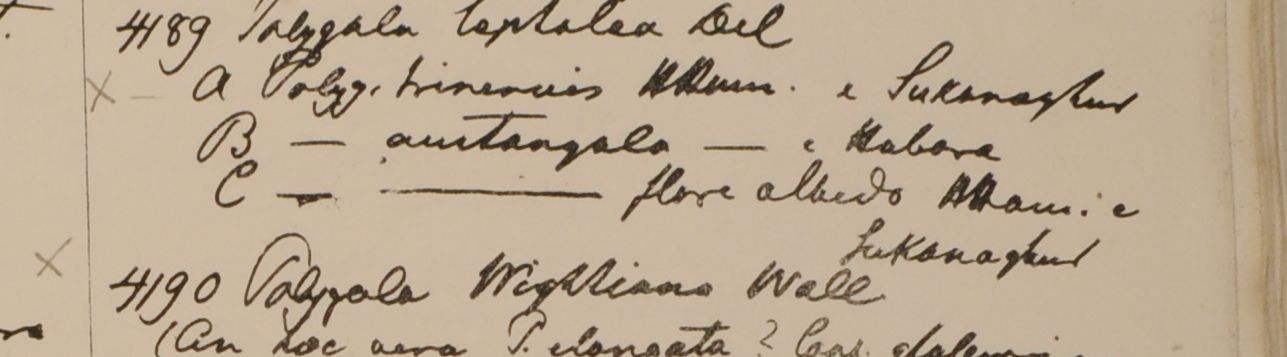 4189 Polygala leptalea Del
A Polyg. trinervis HHam. e Sukanaghur
B — — e Habora
C — — flore albido HHam. e
Sukanaghur
4190 Polygala Wightiana Wall
(An hoc vera P. elongata ?